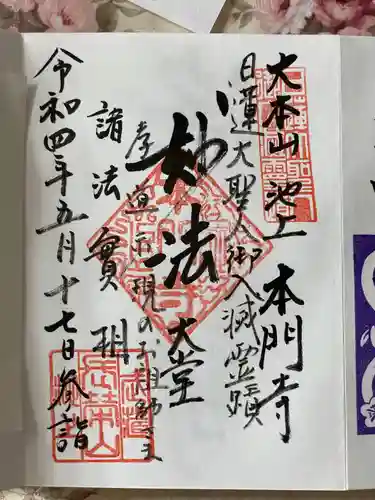 大本山 池上 本門寺
日蓮大聖人御入滅霊蹟
妙法
大堂
孝道示現のお祖師さま
諸法實相
令和四年五月十七日参詣